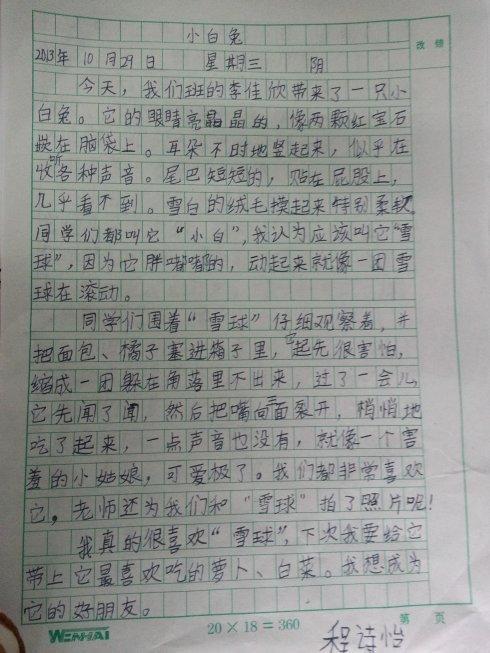 小白兔
改错
2013年 10月29日 星期三 阴
今天，我们班的李佳欣带来了一只小
白兔。它的眼睛亮晶晶的，像两颗红宝石
嵌在脑袋上。耳朵不时地竖起来，似乎在
收听各种声音。尾巴短短的，贴在屁股上，
几乎看不到。雪白的绒毛摸起来特别柔软。
同学们都叫它“小白”，我认为应该叫它“雪
球”，因为它胖嘟嘟的，动起来就像一团雪
球在滚动。
同学们围着“雪球”仔细观察着，并
把面包、橘子塞进箱子里，它起先很害怕，
缩成一团躲在角落里不出来，过了一会儿，
它先闻了闻，然后把嘴向三面裂开，悄悄地
吃了起来，一点声音也没有，就像一个害
羞的小姑娘，可爱极了。我们都非常喜欢
它，老师还为我们和“雪球”拍了照片呢！
我真的很喜欢“雪球”，下次我要给它
带上它最喜欢吃的萝卜、白菜。我想成为
它的好朋友。
WENHAI 20×18=360 第 页
程诗怡